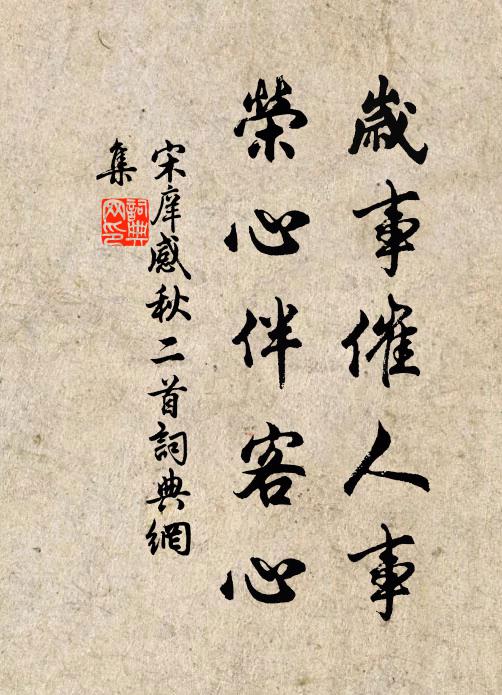 歲事催人事
榮心伴客心
宋庠感秋二首詞典網
集
詞典
网印